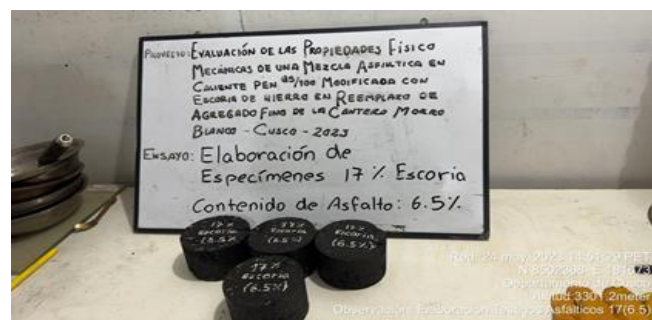 PROYECTO: EVALUACIÓN DE LAS PROPIEDADES FÍSICO
MECÁNICAS DE UNA MEZCLA ASFÁLTICA EN
CALIENTE PEN 85/100 MODIFICADA CON
ESCORIA DE HIERRO EN REEMPLAZO DE
AGREGADO FINO DE LA CANTERA MORRO
BLANCO - CUSCO - 2023
ENSAYO: Elaboración de
Especímenes 17% Escoria
Contenido de Asfalto: 6.5%
17%
ESCORIA
(6.5%)
17%
ESCORIA
(6.5%)
17%
ESCORIA
(6.5%)
17%
ESCORIA
(6.5%)
24 may 2023
PET
Departamento de Cusco
Altitud:3301.2meter
Asfálticos 17(6.5)